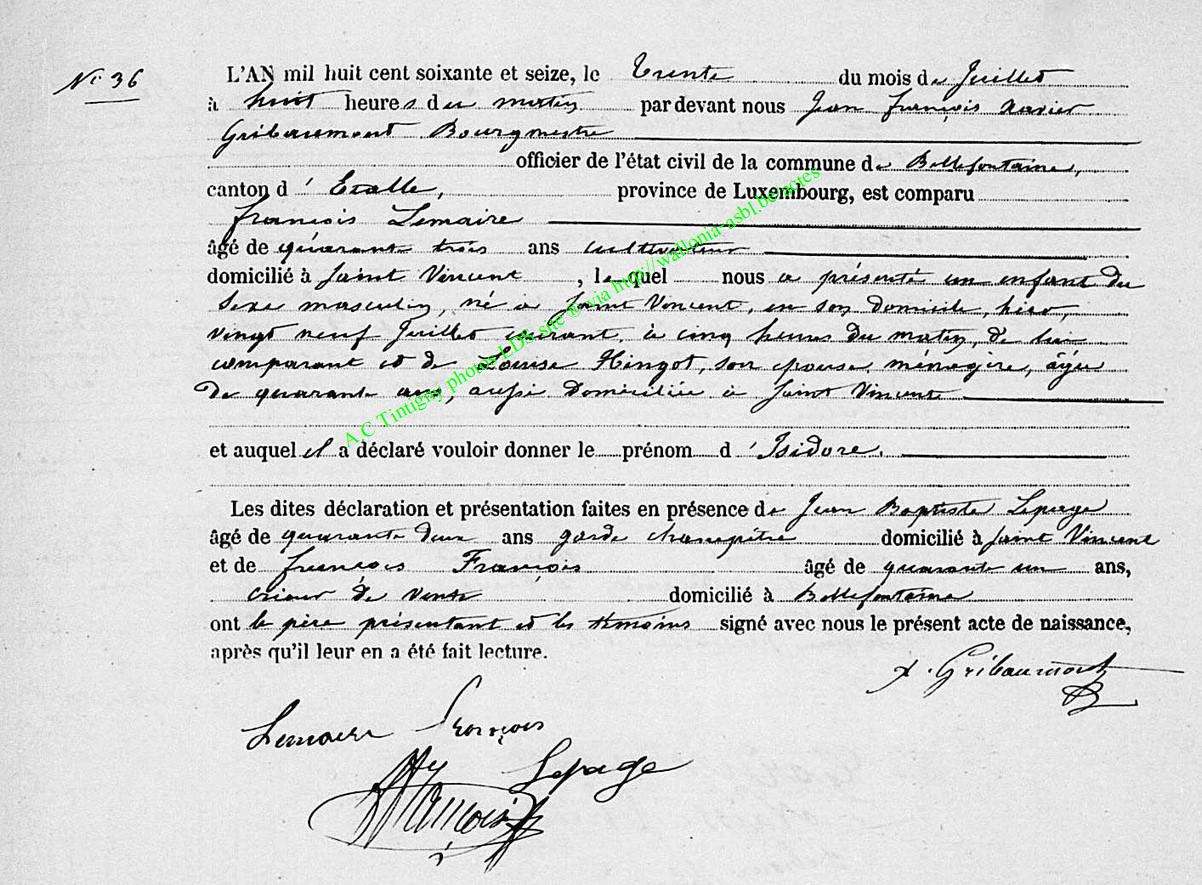 N° 36
L'AN mil huit cent soixante et seize, le Trente du mois de Juillet
à huit heures du matin par devant nous Jean François Xavier
Gribaumont Bourgmestre
officier de l'état civil de la commune de Bellefontaine,
canton d'Etalle, province de Luxembourg, est comparu
François Lemaire
âgé de quarante trois ans cultivateur
domicilié à Saint Vincent, lequel nous a présenté un enfant du
sexe masculin, né à Saint Vincent, en son domicile, hier,
vingt neuf Juillet courant, à cinq heures du matin, de lui
comparant et de Louise Hingot, son épouse, ménagère, âgée
de quarante ans, aussi domiciliée à Saint Vincent
et auquel il a déclaré vouloir donner le prénom d'Isidore.
Les dites déclaration et présentation faites en présence de Jean Baptiste Lepage
âgé de quarante deux ans garde champêtre domicilié à Saint Vincent
et de François François âgé de quarante un ans,
crieur de vente domicilié à Bellefontaine
ont le père présentant et les témoins signé avec nous le présent acte de naissance,
après qu'il leur en a été fait lecture.
X. Gribaumont
Lemaire François
Lepage
François
A.C Tintigny photos LDS site © via http://wallonia-asbl.be/actes